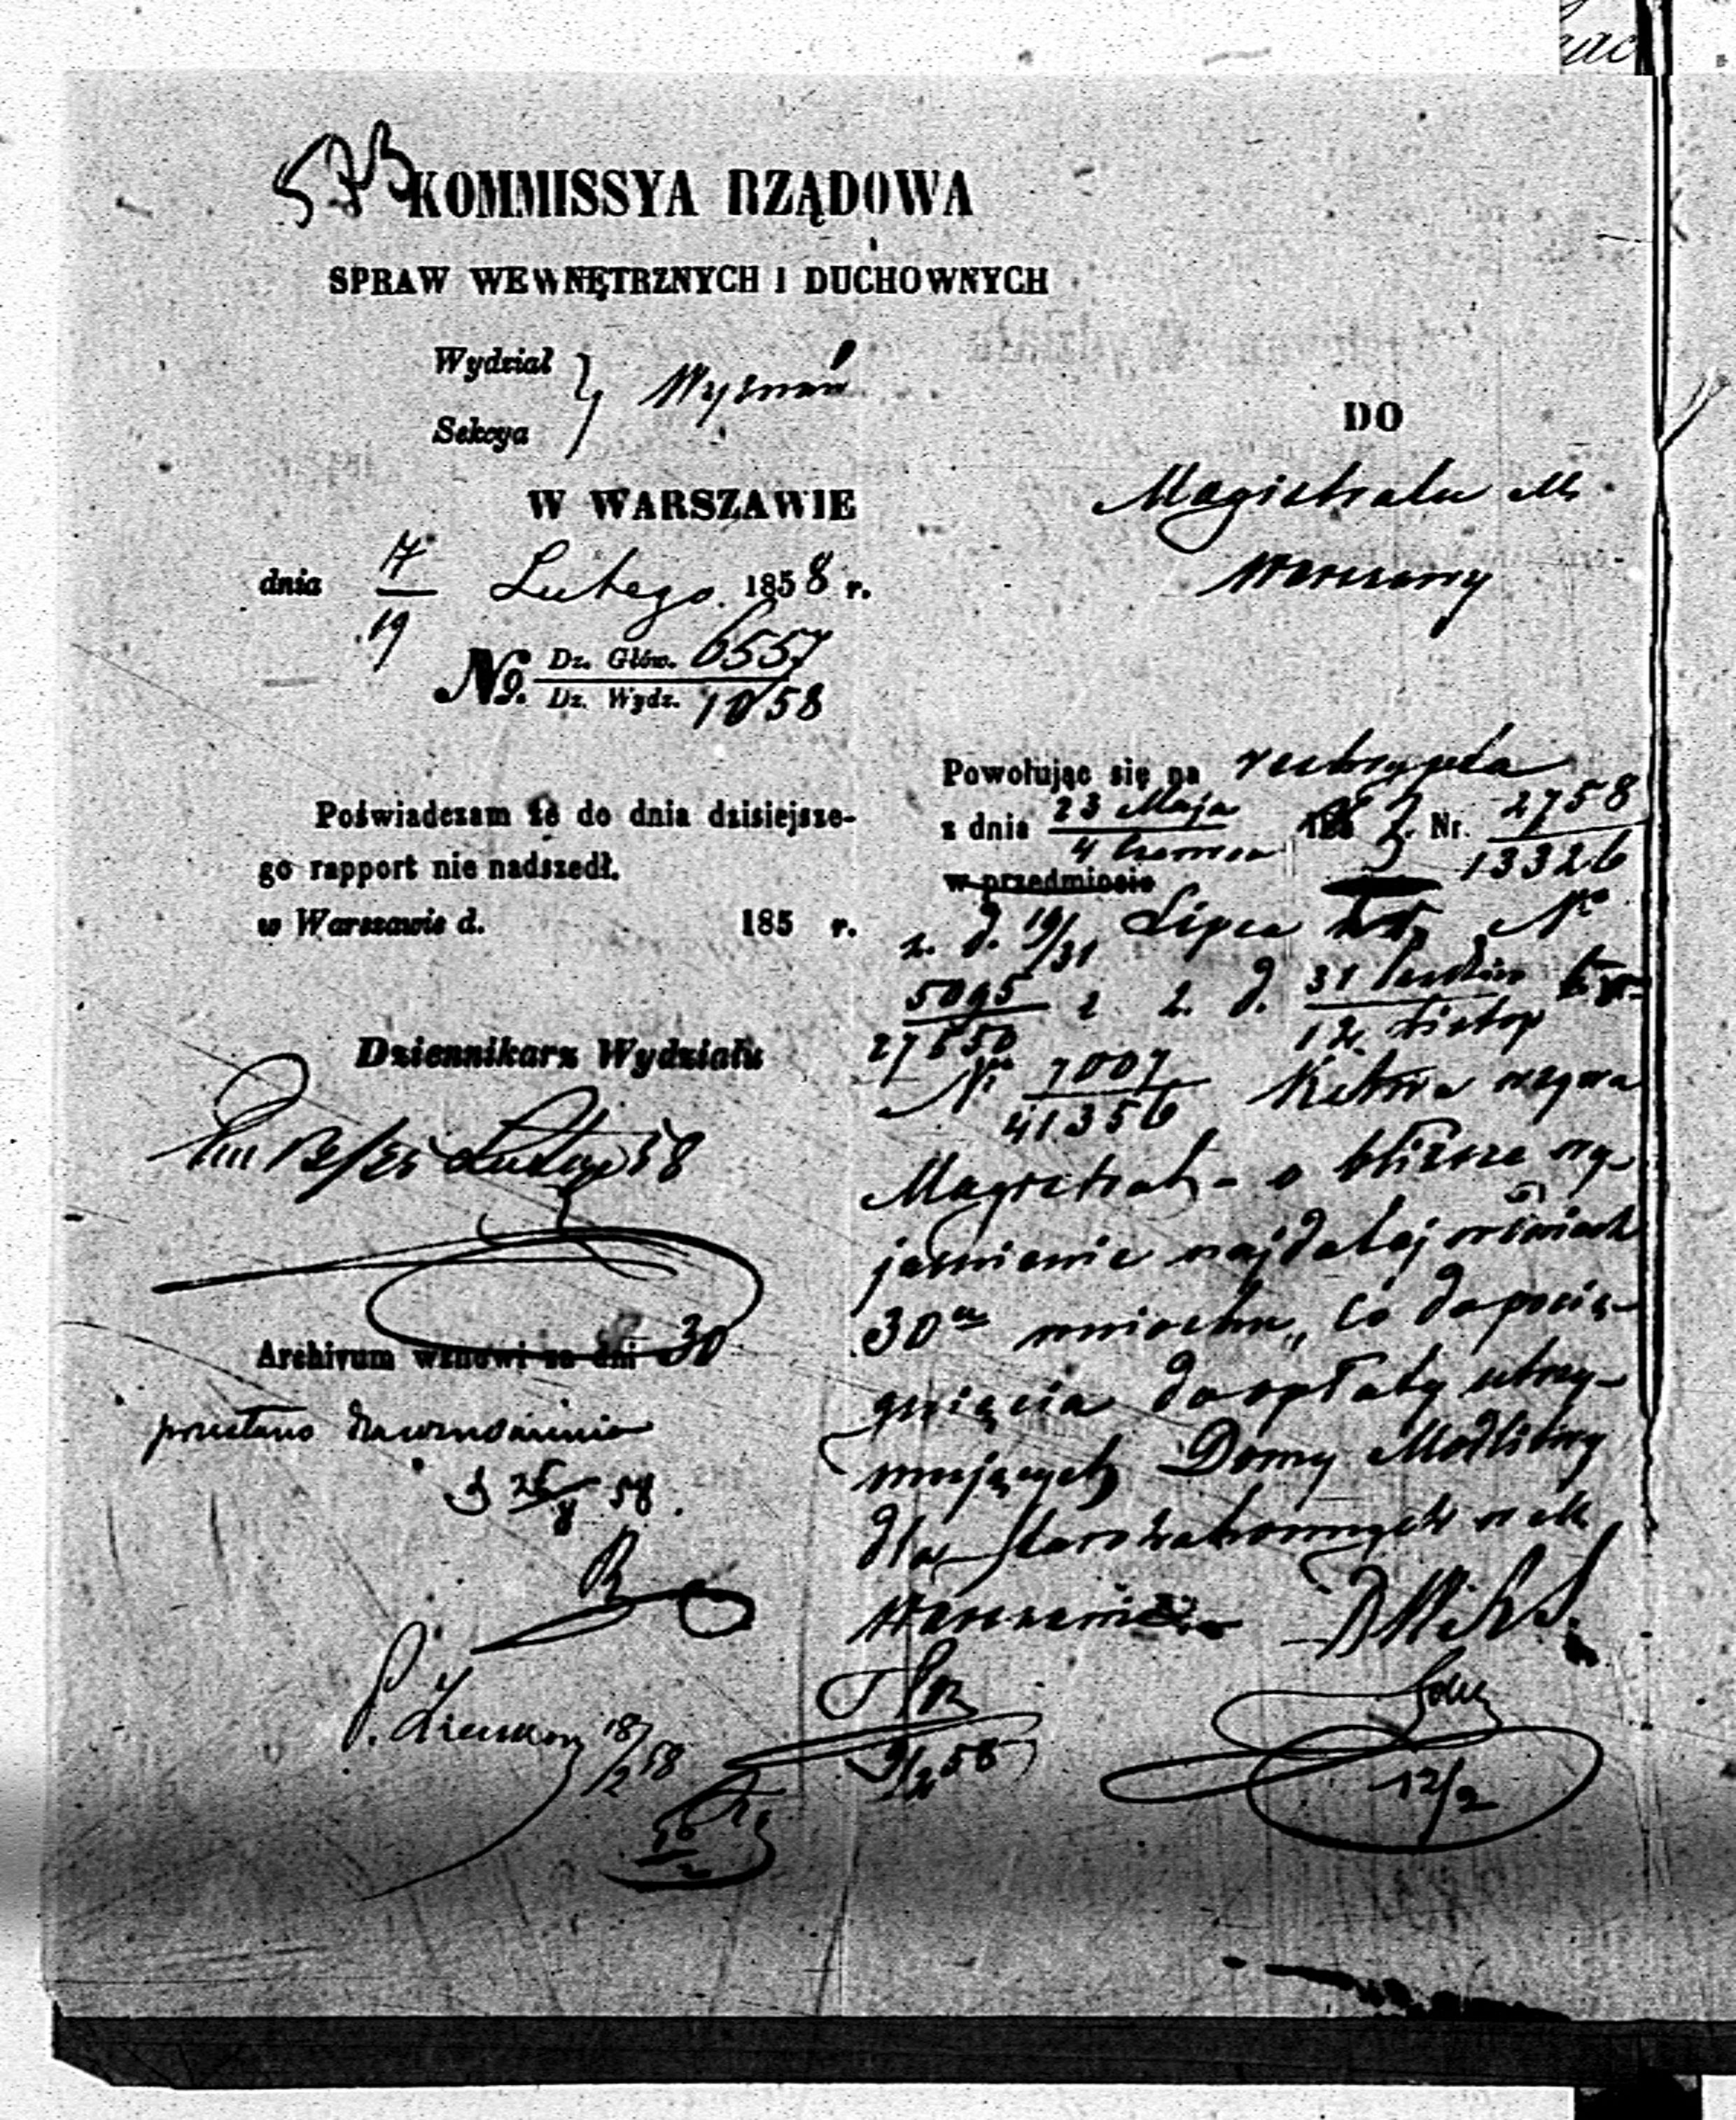 573
KOMMISSYA RZĄDOWA
SPRAW WEWNĘTRZNYCH I DUCHOWNYCH
Wydział
Sekcya } Wyznań
W WARSZAWIE
dnia 7/19 Lutego 1858 r.
No. Dz. Głów. 6557
Dz. Wydz. 1058
Poświadczam że do dnia dzisiejsze-
go rapport nie nadszedł.
w Warszawie d. 185 r.
Dziennikarz Wydziału
Lutego 58
Archivum wznowi za dni 30
przesłano
58
18/2 58
DO
Magistratu M.
Warszawy
Powołując się na reskrypta
z dnia 23 Maja / 4 Czerwca Nr. 2758 / 13326
w przedmiocie
z d. 19/31 Lipca No
5095 / 27850 i z d. 31 / 12 Listop
No 7007 / 41356 wzywa
Magistrat o bliższe wy-
jaśnienie najdalej w dniach
30u wniosku, co do pocią-
gnięcia do opłaty utrzy-
mujących Domy Modlitwy
dla Starozakonnych w M.
Warszawie
9/2 58
12/2